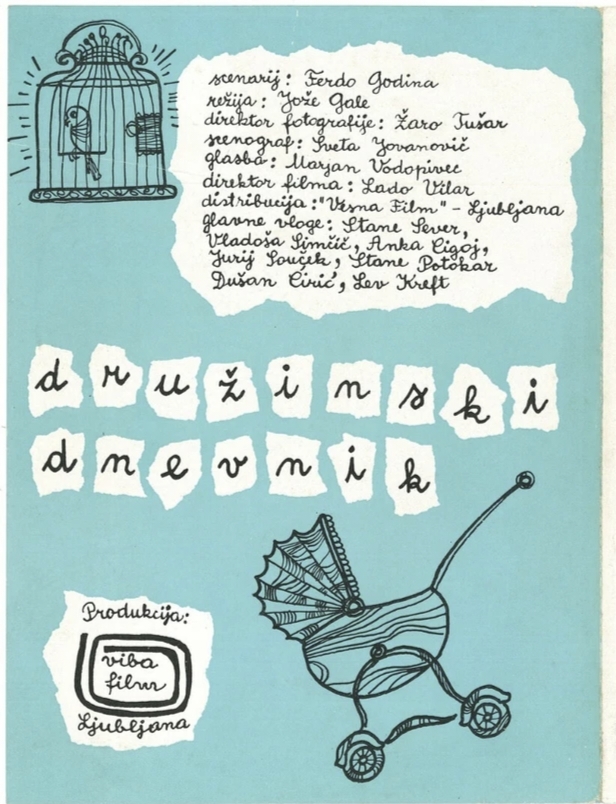 scenarij: Ferdo Godina
režija: Jože Gale
direktor fotografije: Žaro Tušar
scenograf: Sveta Jovanovič
glasba: Marjan Vodopivec
direktor filma: Lado Vilar
distribucija: "Vesna Film" - Ljubljana
glavne vloge: Stane Sever,
Vladoša Simčič, Anka Cigoj,
Jurij Souček, Stane Potokar
Dušan Čirić, Lev Kreft
družinski
dnevnik
Produkcija:
viba
film
Ljubljana